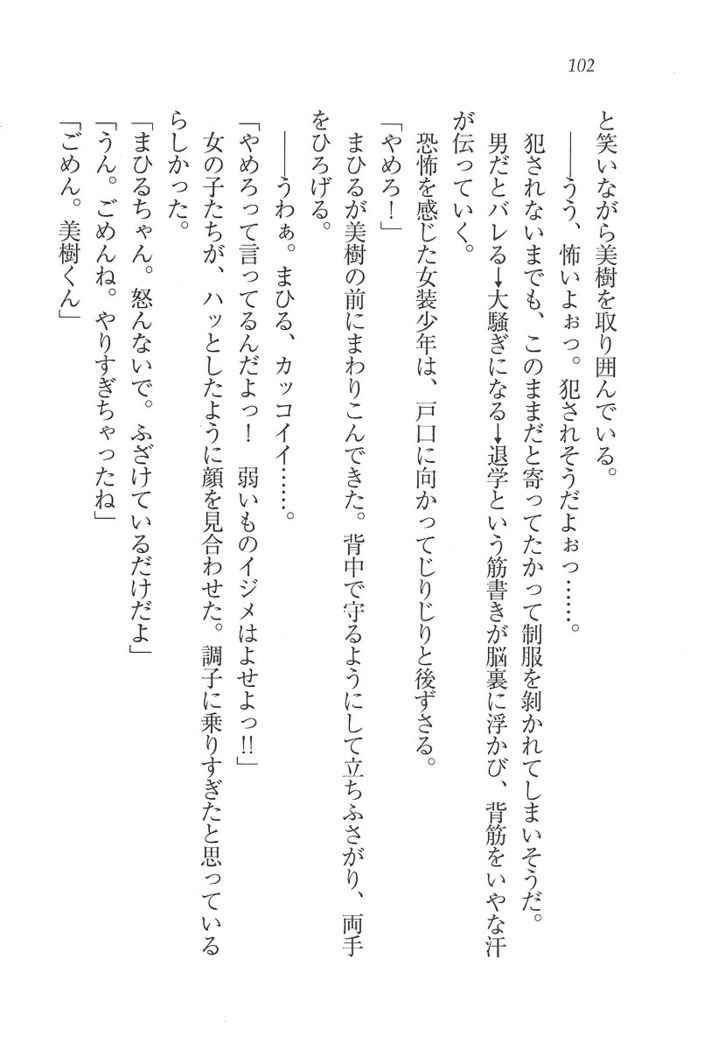 102
と笑いながら美樹を取り囲んでいる。
――うう、怖いよぉっ。犯されそうだよぉっ……。
犯されないまでも、このままだと寄ってたかって制服を剝かれてしまいそうだ。
男だとバレる→大騒ぎになる→退学という筋書きが脳裏に浮かび、背筋をいやな汗
が伝っていく。
恐怖を感じた女装少年は、戸口に向かってじりじりと後ずさる。
「やめろ！」
まひるが美樹の前にまわりこんできた。背中で守るようにして立ちふさがり、両手
をひろげる。
――うわぁ。まひる、カッコイイ……。
「やめろって言ってるんだよっ！　弱いものイジメはよせよっ!!」
女の子たちが、ハッとしたように顔を見合わせた。調子に乗りすぎたと思っている
らしかった。
「まひるちゃん。怒んないで。ふざけているだけだよ」
「うん。ごめんね。やりすぎちゃったね」
「ごめん。美樹くん」